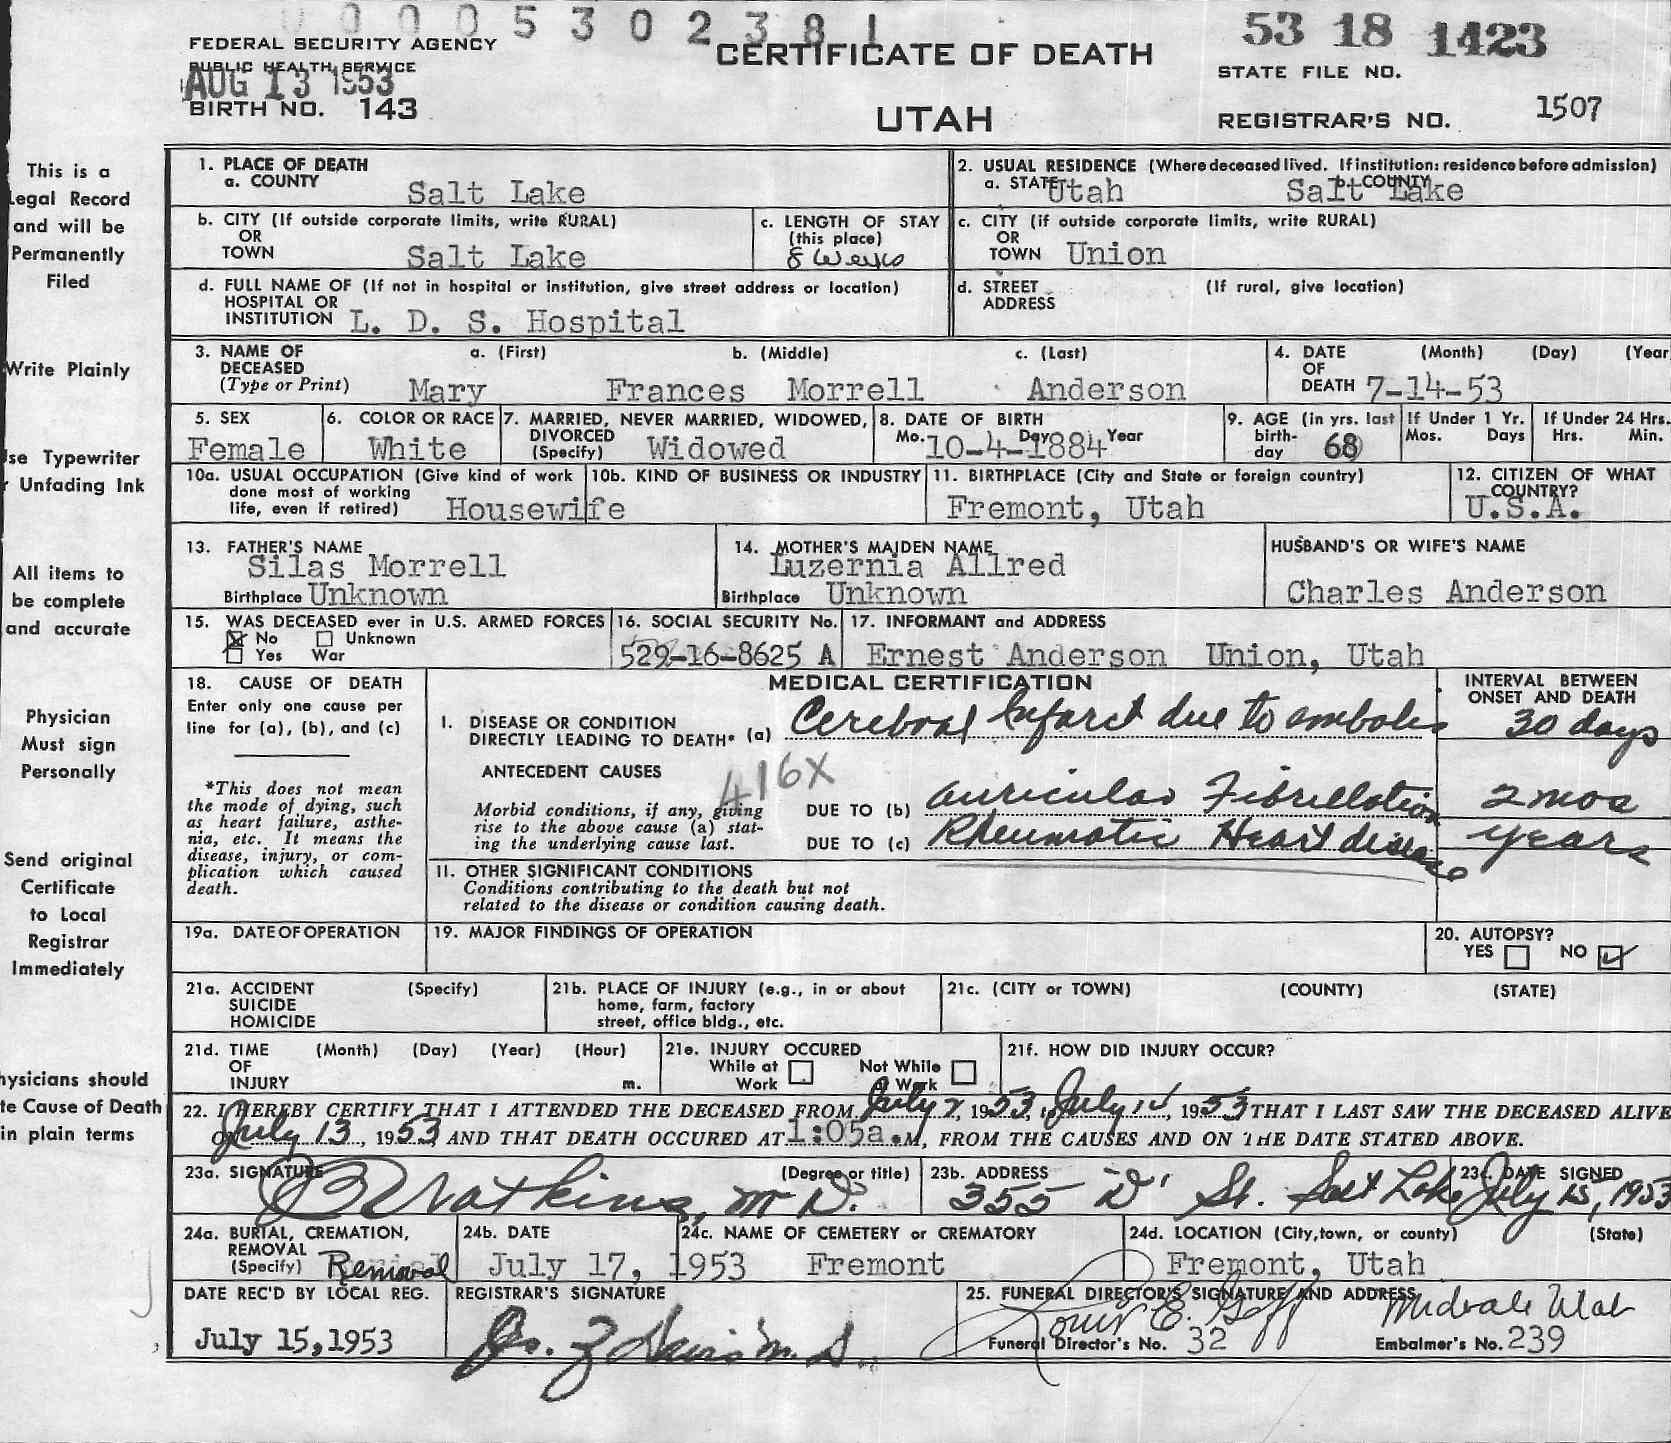 0000530238 1
53 18 1423
FEDERAL SECURITY AGENCY
PUBLIC HEALTH SERVICE
AUG 13 1953
BIRTH NO. 143
CERTIFICATE OF DEATH
UTAH
STATE FILE NO.
REGISTRAR'S NO. 1507
This is a
Legal Record
and will be
Permanently
Filed
Write Plainly
se Typewriter
r Unfading Ink
All items to
be complete
and accurate
Physician
Must sign
Personally
Send original
Certificate
to Local
Registrar
Immediately
hysicians should
te Cause of Death
in plain terms
1. PLACE OF DEATH
a. COUNTY Salt Lake
2. USUAL RESIDENCE (Where deceased lived. If institution: residence before admission)
a. STATE Utah b. COUNTY Salt Lake
b. CITY (If outside corporate limits, write RURAL)
OR
TOWN Salt Lake
c. LENGTH OF STAY
(this place)
8 Weeks
c. CITY (if outside corporate limits, write RURAL)
OR
TOWN Union
d. FULL NAME OF (If not in hospital or institution, give street address or location)
HOSPITAL OR
INSTITUTION L. D. S. Hospital
d. STREET (If rural, give location)
ADDRESS
3. NAME OF a. (First) b. (Middle) c. (Last)
DECEASED
(Type or Print) Mary Frances Morrell Anderson
4. DATE (Month) (Day) (Year
OF
DEATH 7-14-53
5. SEX
Female
6. COLOR OR RACE
White
7. MARRIED, NEVER MARRIED, WIDOWED,
DIVORCED
(Specify) Widowed
8. DATE OF BIRTH
Mo. Day Year
10-4-1884
9. AGE (in yrs. last
birth-
day 68
If Under 1 Yr.
Mos. Days
If Under 24 Hrs.
Hrs. Min.
10a. USUAL OCCUPATION (Give kind of work
done most of working
life, even if retired) Housewife
10b. KIND OF BUSINESS OR INDUSTRY
11. BIRTHPLACE (City and State or foreign country)
Fremont, Utah
12. CITIZEN OF WHAT
COUNTRY?
U.S.A.
13. FATHER'S NAME
Silas Morrell
Birthplace Unknown
14. MOTHER'S MAIDEN NAME
Luzernia Allred
Birthplace Unknown
HUSBAND'S OR WIFE'S NAME
Charles Anderson
15. WAS DECEASED ever in U.S. ARMED FORCES
No Unknown
Yes War
16. SOCIAL SECURITY No.
529-16-8625 A
17. INFORMANT and ADDRESS
Ernest Anderson Union, Utah
18. CAUSE OF DEATH
Enter only one cause per
line for (a), (b), and (c)
*This does not mean
the mode of dying, such
as heart failure, asthe-
nia, etc. It means the
disease, injury, or com-
plication which caused
death.
MEDICAL CERTIFICATION
INTERVAL BETWEEN
ONSET AND DEATH
I. DISEASE OR CONDITION
DIRECTLY LEADING TO DEATH* (a) Cerebral Infarct due to embolus 30 days
ANTECEDENT CAUSES
416X
Morbid conditions, if any, giving
rise to the above cause (a) stat-
ing the underlying cause last.
DUE TO (b) Auricular Fibrillation 2 mos
DUE TO (c) Rheumatic Heart disease years
II. OTHER SIGNIFICANT CONDITIONS
Conditions contributing to the death but not
related to the disease or condition causing death.
19a. DATE OF OPERATION
19. MAJOR FINDINGS OF OPERATION
20. AUTOPSY?
YES NO
21a. ACCIDENT (Specify)
SUICIDE
HOMICIDE
21b. PLACE OF INJURY (e.g., in or about
home, farm, factory
street, office bldg., etc.
21c. (CITY or TOWN) (COUNTY) (STATE)
21d. TIME (Month) (Day) (Year) (Hour)
OF
INJURY m.
21e. INJURY OCCURED
While at Not While
Work at Work
21f. HOW DID INJURY OCCUR?
22. I HEREBY CERTIFY THAT I ATTENDED THE DECEASED FROM July 7, 1953, to July 14, 1953 THAT I LAST SAW THE DECEASED ALIVE
ON July 13, 1953 AND THAT DEATH OCCURED AT 1:05a.M, FROM THE CAUSES AND ON THE DATE STATED ABOVE.
23a. SIGNATURE (Degree or title)
Watkins, M D.
23b. ADDRESS
355 "D" St. Salt Lake
23c. DATE SIGNED
July 15, 1953
24a. BURIAL, CREMATION,
REMOVAL
(Specify) Removal
24b. DATE
July 17, 1953
24c. NAME OF CEMETERY or CREMATORY
Fremont
24d. LOCATION (City, town, or county) (State)
Fremont, Utah
DATE REC'D BY LOCAL REG.
July 15, 1953
REGISTRAR'S SIGNATURE
M. D.
25. FUNERAL DIRECTOR'S SIGNATURE AND ADDRESS
Louis E. Goff Midvale Utah
Funeral Director's No. 32 Embalmer's No. 239